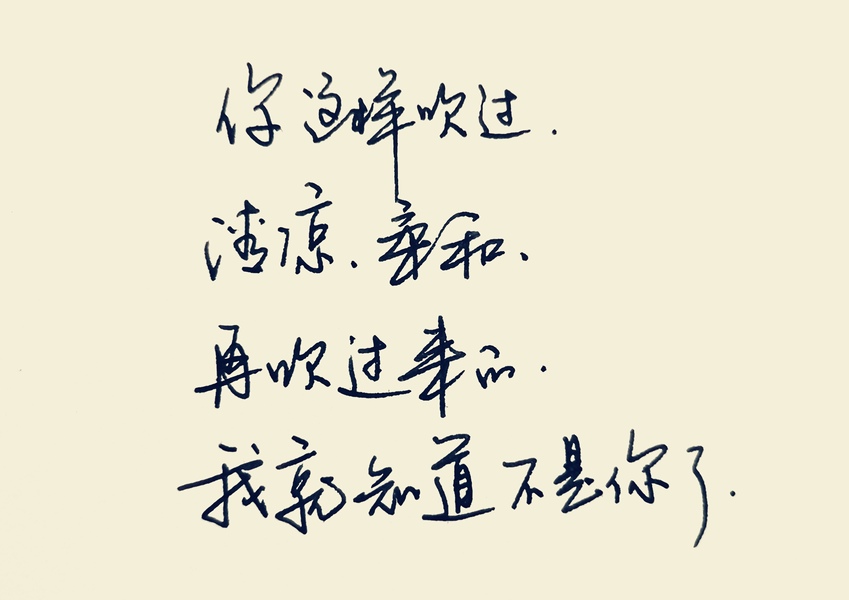 你这样吹过.
清凉.柔和.
再吹过来的.
我就知道不是你了.